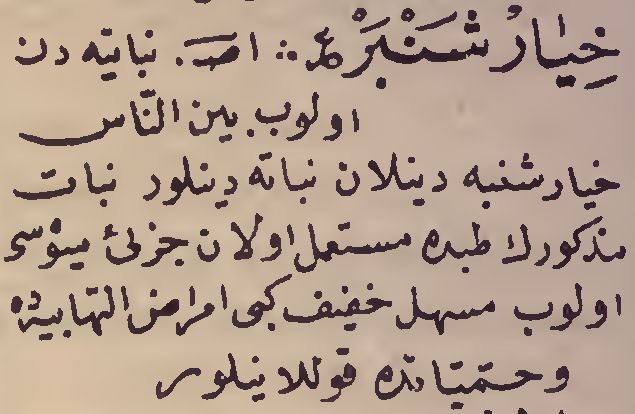 خِيَارْشَنْبَرْ ع ∴ اصـ. نباتيه دن
اولوب بين النّاس
خيارشنبه دينلان نباته دينلور نبات
مذكورك طبده مستعمل اولان جزئ ميوۀسى
اولوب مسهل خفيف كبى امراض التهابيه ده
وحميّاتده قوللانيلور